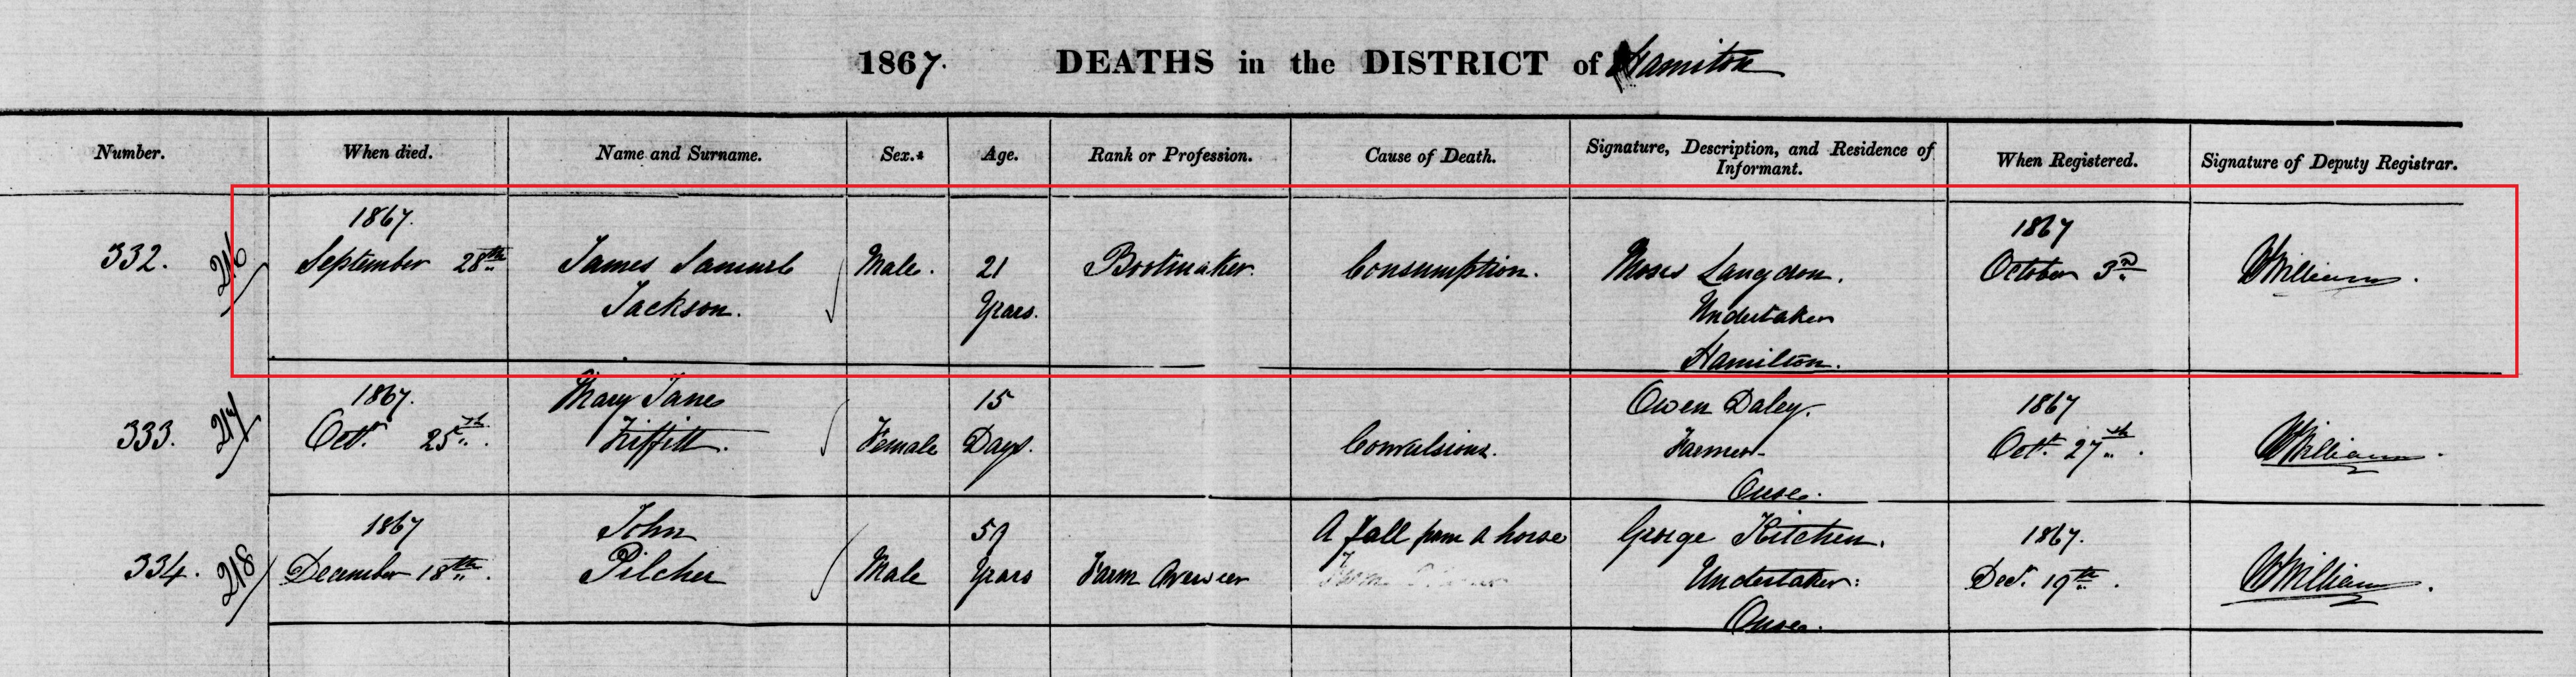 1867. DEATHS in the DISTRICT of Hamilton
Number. When died. Name and Surname. Sex. Age. Rank or Profession. Cause of Death. Signature, Description, and Residence of Informant. When Registered. Signature of Deputy Registrar.
332. 216 1867. September 28th James Samuel Jackson. Male. 21 Years. Bootmaker. Consumption. Moses Langdon. Undertaker Hamilton. 1867 October 3rd
333. 217 1867. Octr. 25th. Mary Jane Female 15 Days. Convulsions. Owen Daley. Farmer Ouse. 1867 Octr. 27th.
334. 218 1867 December 18th. John Pilcher Male 59 Years Farm Overseer A fall from a horse George Kitchen. Undertaker: Ouse. 1867. Decr. 19th.